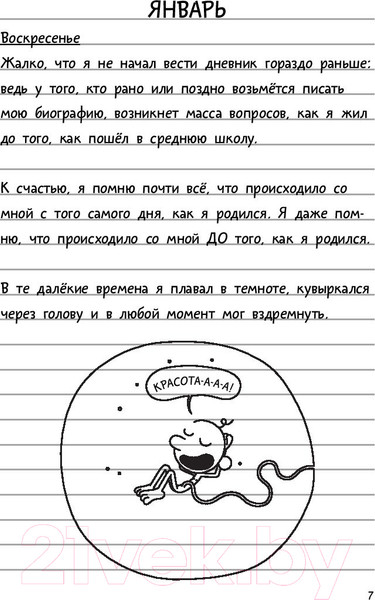 ЯНВАРЬ
Воскресенье
Жалко, что я не начал вести дневник гораздо раньше:
ведь у того, кто рано или поздно возьмётся писать
мою биографию, возникнет масса вопросов, как я жил
до того, как пошёл в среднюю школу.
К счастью, я помню почти всё, что происходило со
мной с того самого дня, как я родился. Я даже пом-
ню, что происходило со мной ДО того, как я родился.
В те далёкие времена я плавал в темноте, кувыркался
через голову и в любой момент мог вздремнуть.
КРАСОТА-А-А-А!
21vek.by
7